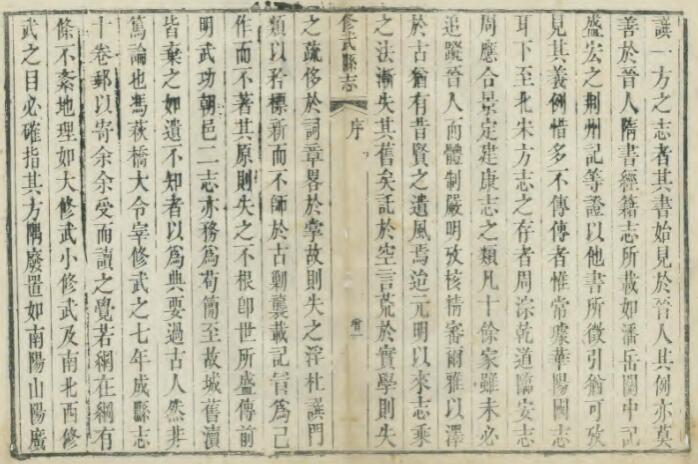 譔一方之志者其書始見於晉人其例亦莫
善於晉人隋書經籍志所載如潘岳關中記
盛宏之荆州記等證以他書所徵引猶可攷
見其義例惜多不傳傳者惟常璩華陽國志
耳下至北宋方志之存者周淙乾道臨安志
周應合景定建康志之類凡十餘家雖未必
追蹤晉人而體制嚴明攷核精審爾雅以澤
於古猶有昔賢之遺風焉迨元明以來志乘
之法漸失其舊矣託於空言荒於實學則失
修武縣志 序
之疏侈於詞章畧於掌故則失之浮杜譔門
類以矜標新而不師於古勦襲載記冒爲己
作而不著其原則失之不根卽世所盛傳前
明武功朝邑二志亦務爲苟簡至故城舊瀆
皆棄之如遺不知者以爲典要過古人然非
篤論也馮萩橋大令宰修武之七年成縣志
十卷郵以寄余余受而讀之覺若網在綱有
條不紊地理如大修武小修武及南北西修
武之目必確指其方隅廢置如南陽山陽廣